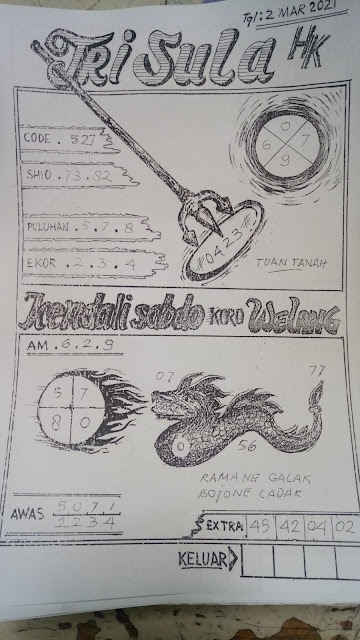 Tgl : 2 MAR 2021
TRi SULA HK
CODE . 527
SHIO . 73.82
PULUHAN . 5 . 7 . 8
EKOR . 2 . 3 . 4
0
6 7
9
#0423#
TUAN TANAH
Kendali sabdo KORO WELANG
AM . 6 . 2 . 9
5 7
8 0
07
77
0
56
RAMANE GALAK
BOJONE LADAK
AWAS 5071
2234
EXTRA 45 42 04 02
KELUAR